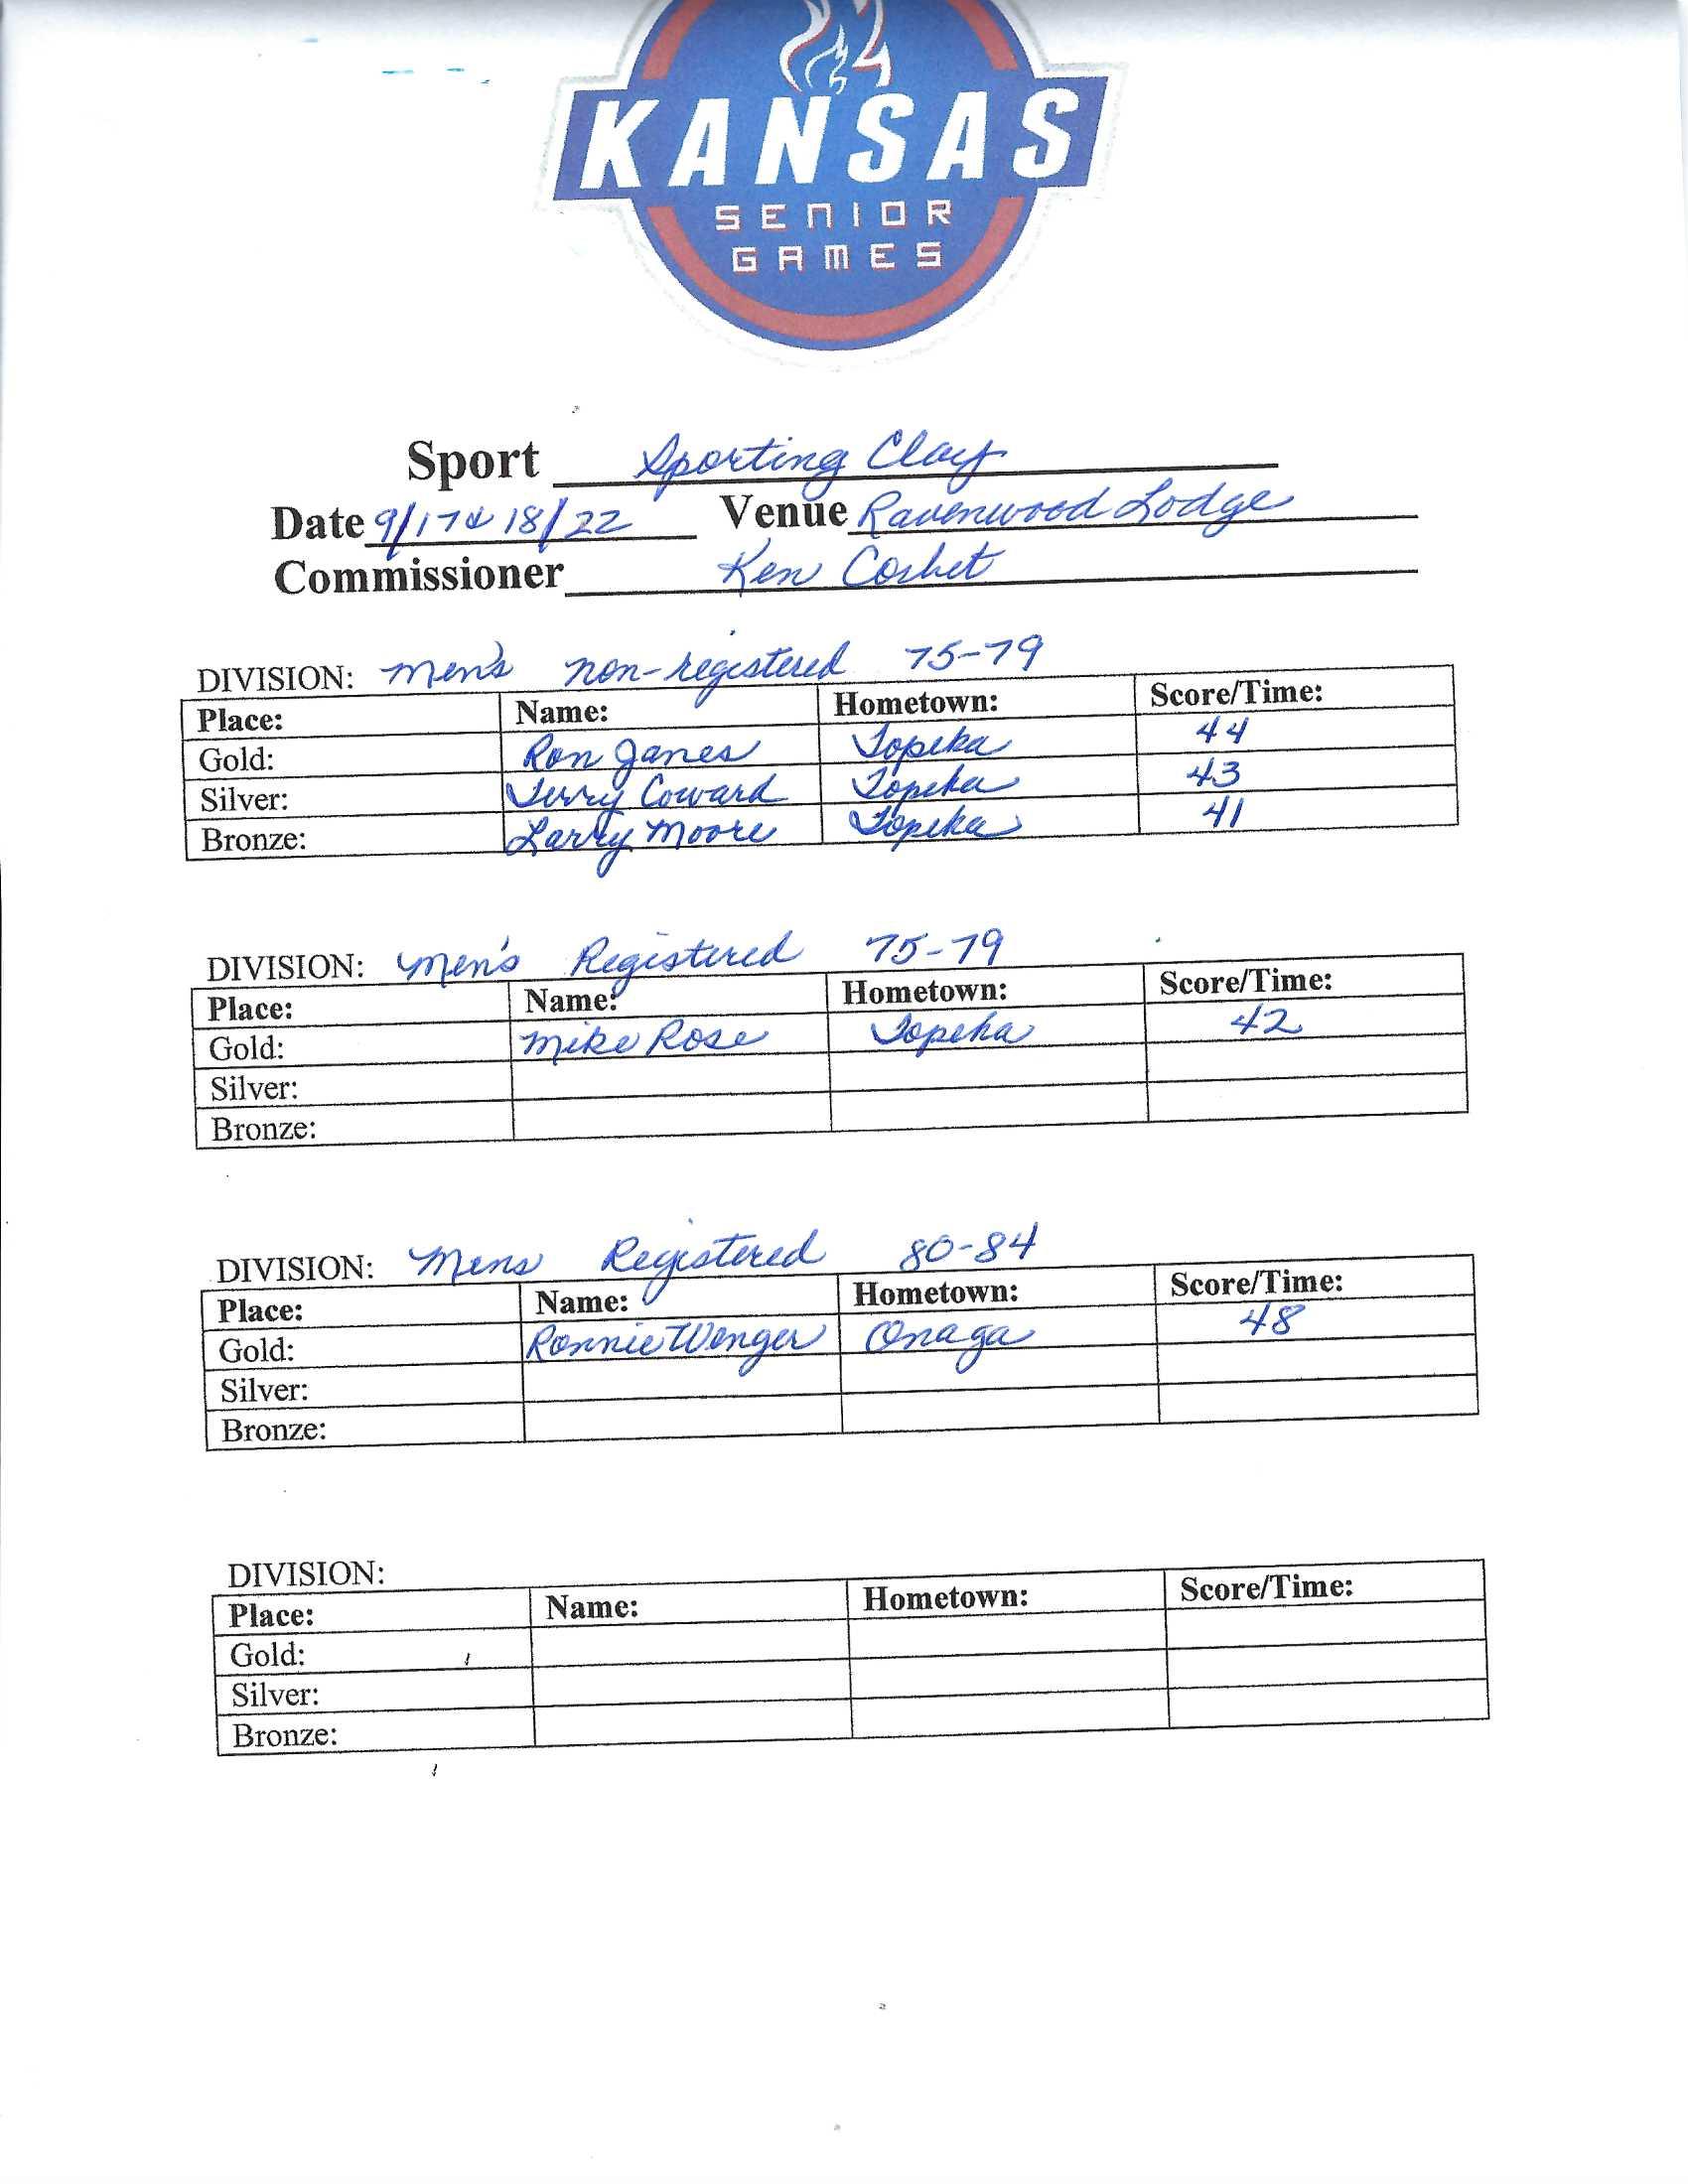 KANSAS
SENIOR
GAMES
Sport Sporting Clay
Date 9/17 & 18/22 Venue Ravenwood Lodge
Commissioner Ken Corbet
DIVISION: Men's non-registered 75-79
Place: Name: Hometown: Score/Time:
Gold: Ron Janes Topeka 44
Silver: Terry Coward Topeka 43
Bronze: Larry Moore Topeka 41
DIVISION: Men's Registered 75-79
Place: Name: Hometown: Score/Time:
Gold: Mike Rose Topeka 42
Silver:
Bronze:
DIVISION: Mens Registered 80-84
Place: Name: Hometown: Score/Time:
Gold: Ronnie Wenger Onaga 48
Silver:
Bronze:
DIVISION:
Place: Name: Hometown: Score/Time:
Gold:
Silver:
Bronze: